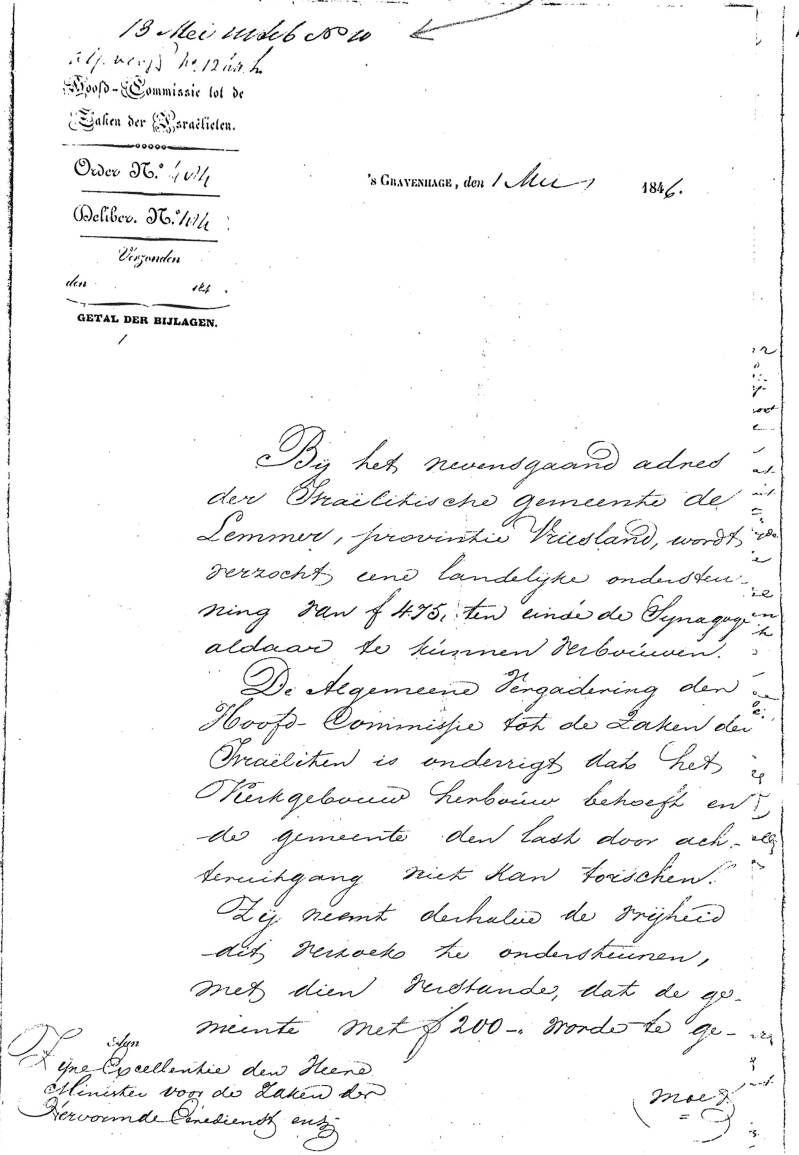 13 Mei No 10
Hoofd-Commissie tot de
Zaken der Israëlieten.
Order N.º
Deliber. N.º
Verzonden
den 184 .
GETAL DER BIJLAGEN.
1
's GRAVENHAGE, den 1 Mei 1846.
Bij het nevensgaand adres
der Israëlitische gemeente de
Lemmer, provintie Vriesland, wordt
verzocht eene landelijke ondersteu-
ning van f 475, ten einde de Synagoge
aldaar te kunnen verbouwen.
De Algemeene Vergadering der
Hoofd-Commissie tot de Zaken der
Israëliten is onderrigt dat het
Kerkgebouw herbouw behoeft en
de gemeente den last door ach-
teruitgang niet kan torschen.
Zij neemt derhalve de vrijheid
dit verzoek te ondersteunen,
met dien verstande, dat de ge-
meente met f 200-. worde te ge-
moet
Aan
Zijne Excellentie den Heere
Minister voor de Zaken der
Hervormde Eeredienst enz.